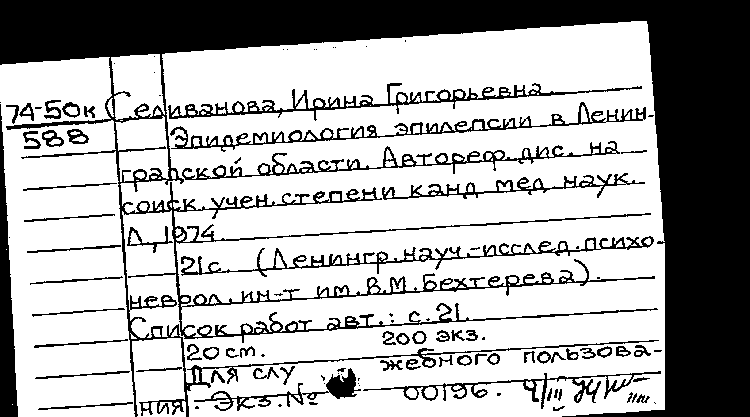 74-50к Селиванова, Ирина Григорьевна.
588 Эпидемиология эпилепсии в Ленин-
градской области. Автореф. дис. на
соиск. учен. степени канд мед наук.
Л., 1974.
21с. (Ленингр. науч.-исслед. психо-
неврол. ин-т им. В.М. Бехтерева).
Список работ авт.: с. 21.
20 см. 200 экз.
Для слу жебного пользова-
ния. Экз. № 00196.